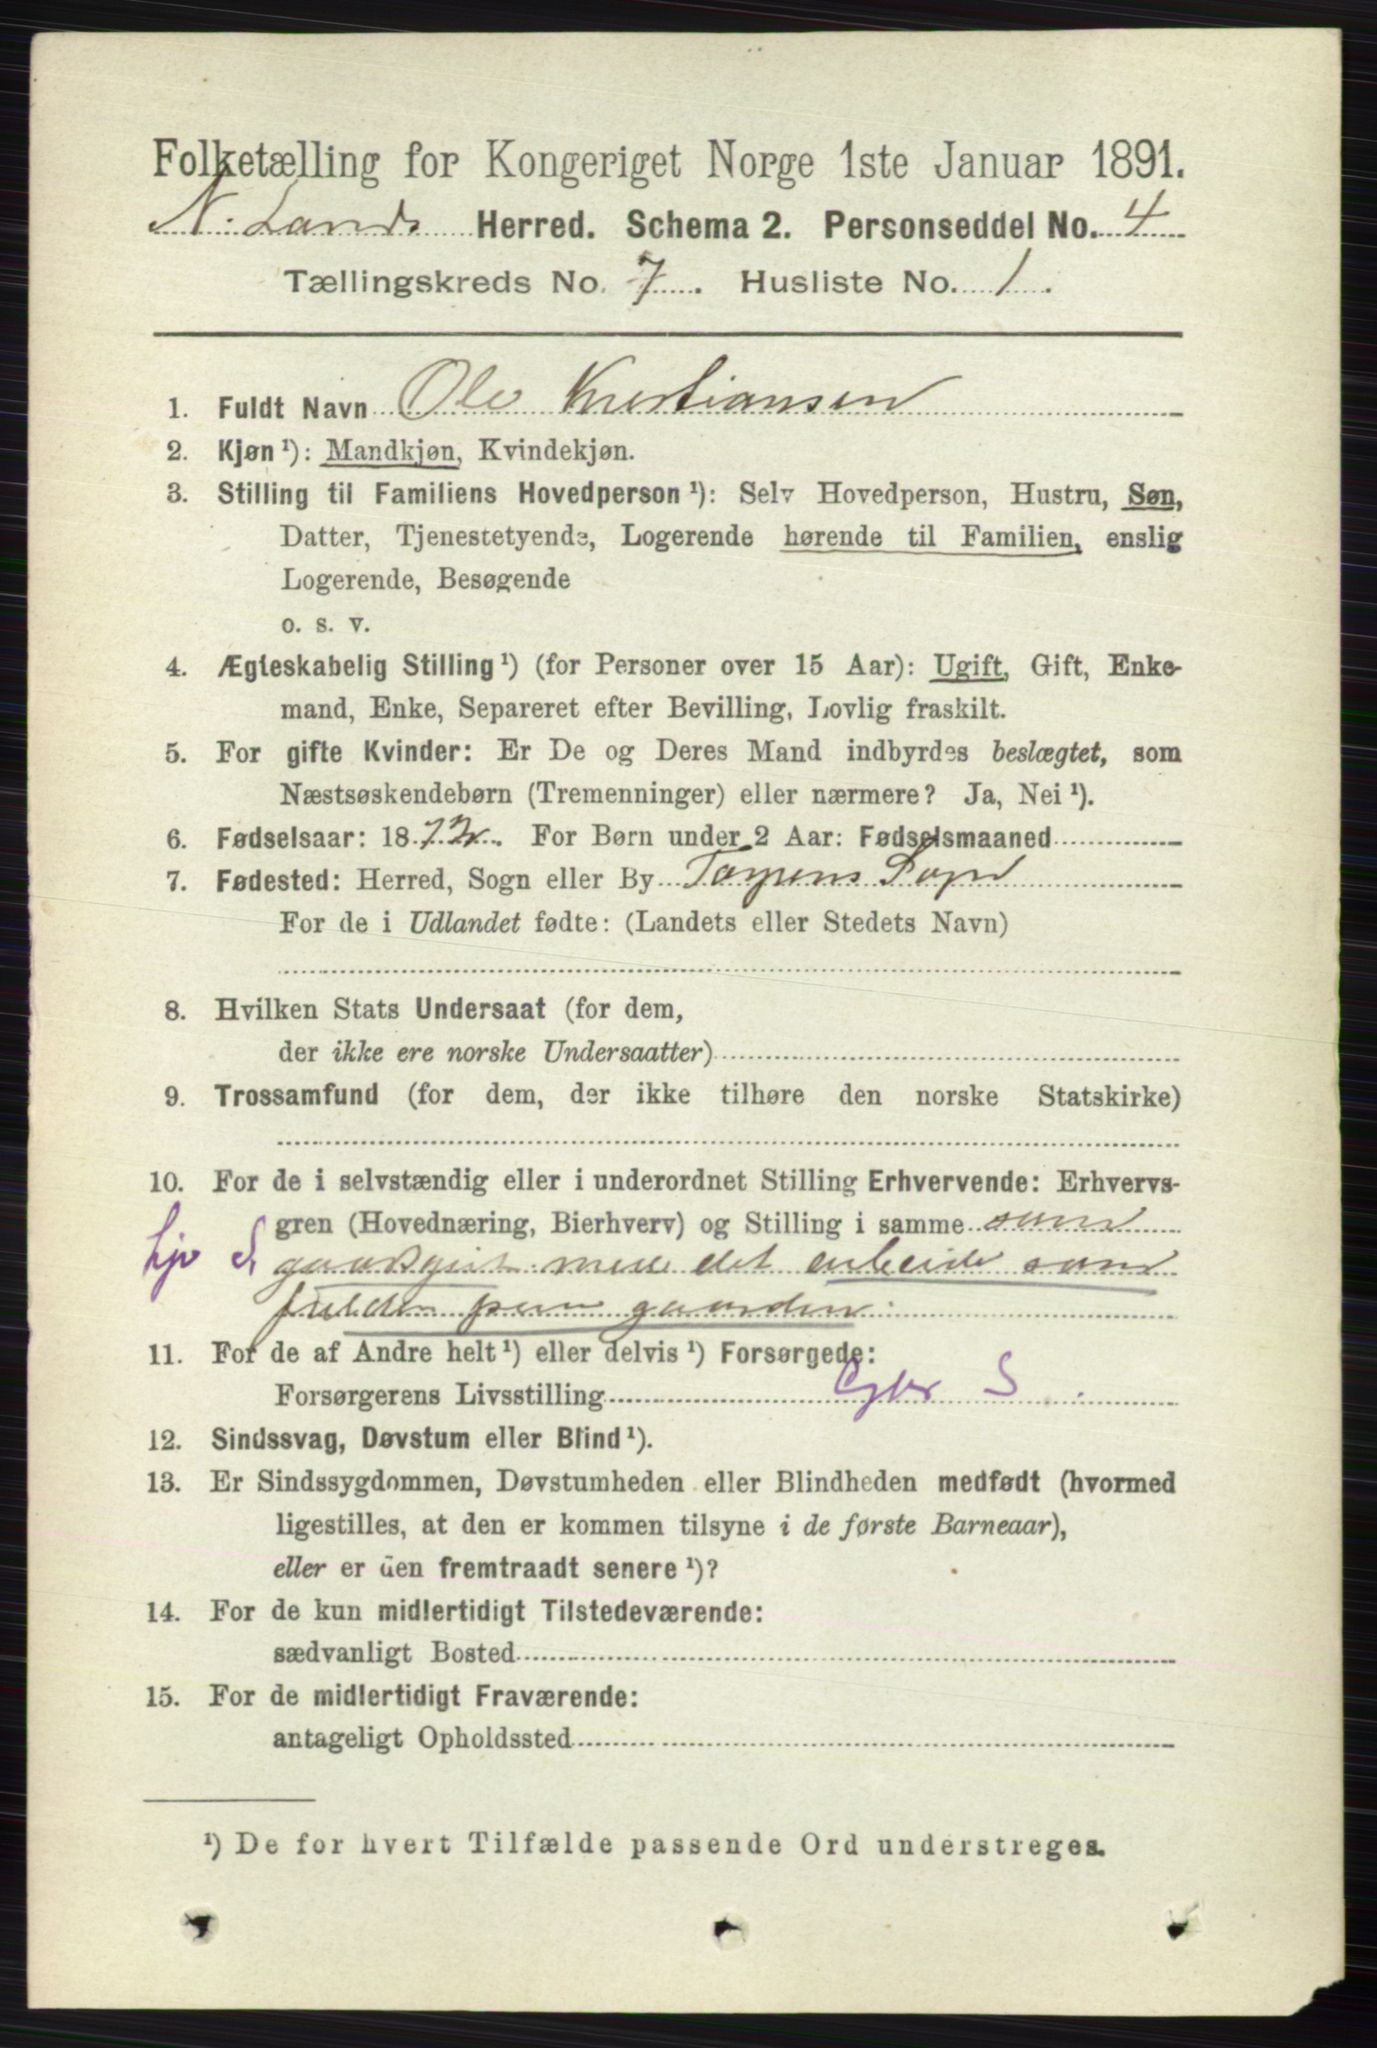 Folketælling for Kongeriget Norge 1ste Januar 1891.
N. Lands Herred. Schema 2. Personseddel No. 4
Tællingskreds No. 7. Husliste No. 1.
1. Fuldt Navn Ole Kristiansen
2. Kjøn ¹): Mandkjøn, Kvindekjøn.
3. Stilling til Familiens Hovedperson ¹): Selv Hovedperson, Hustru, Søn,
Datter, Tjenestetyende, Logerende hørende til Familien, enslig
Logerende, Besøgende
o. s. v.
4. Ægteskabelig Stilling ¹) (for Personer over 15 Aar): Ugift, Gift, Enke-
mand, Enke, Separeret efter Bevilling, Lovlig fraskilt.
5. For gifte Kvinder: Er De og Deres Mand indbyrdes beslægtet, som
Næstsøskendebørn (Tremenninger) eller nærmere? Ja, Nei ¹).
6. Fødselsaar: 18 For Børn under 2 Aar: Fødselsmaaned
7. Fødested: Herred, Sogn eller By Torpens Sogn
For de i Udlandet fødte: (Landets eller Stedets Navn)
8. Hvilken Stats Undersaat (for dem,
der ikke ere norske Undersaatter)
9. Trossamfund (for dem, der ikke tilhøre den norske Statskirke)
10. For de i selvstændig eller i underordnet Stilling Erhvervende: Erhvervs-
gren (Hovednæring, Bierhverv) og Stilling i samme som
hjo S. med det arbeide som
paa gaarden.
11. For de af Andre helt ¹) eller delvis ¹) Forsørgede:
Forsørgerens Livsstilling Gbr S
12. Sindssvag, Døvstum eller Blind ¹).
13. Er Sindssygdommen, Døvstumheden eller Blindheden medfødt (hvormed
ligestilles, at den er kommen tilsyne i de første Barneaar),
eller er den fremtraadt senere ¹)?
14. For de kun midlertidigt Tilstedeværende:
sædvanligt Bosted
15. For de midlertidigt Fraværende:
antageligt Opholdssted
¹) De for hvert Tilfælde passende Ord understreges.